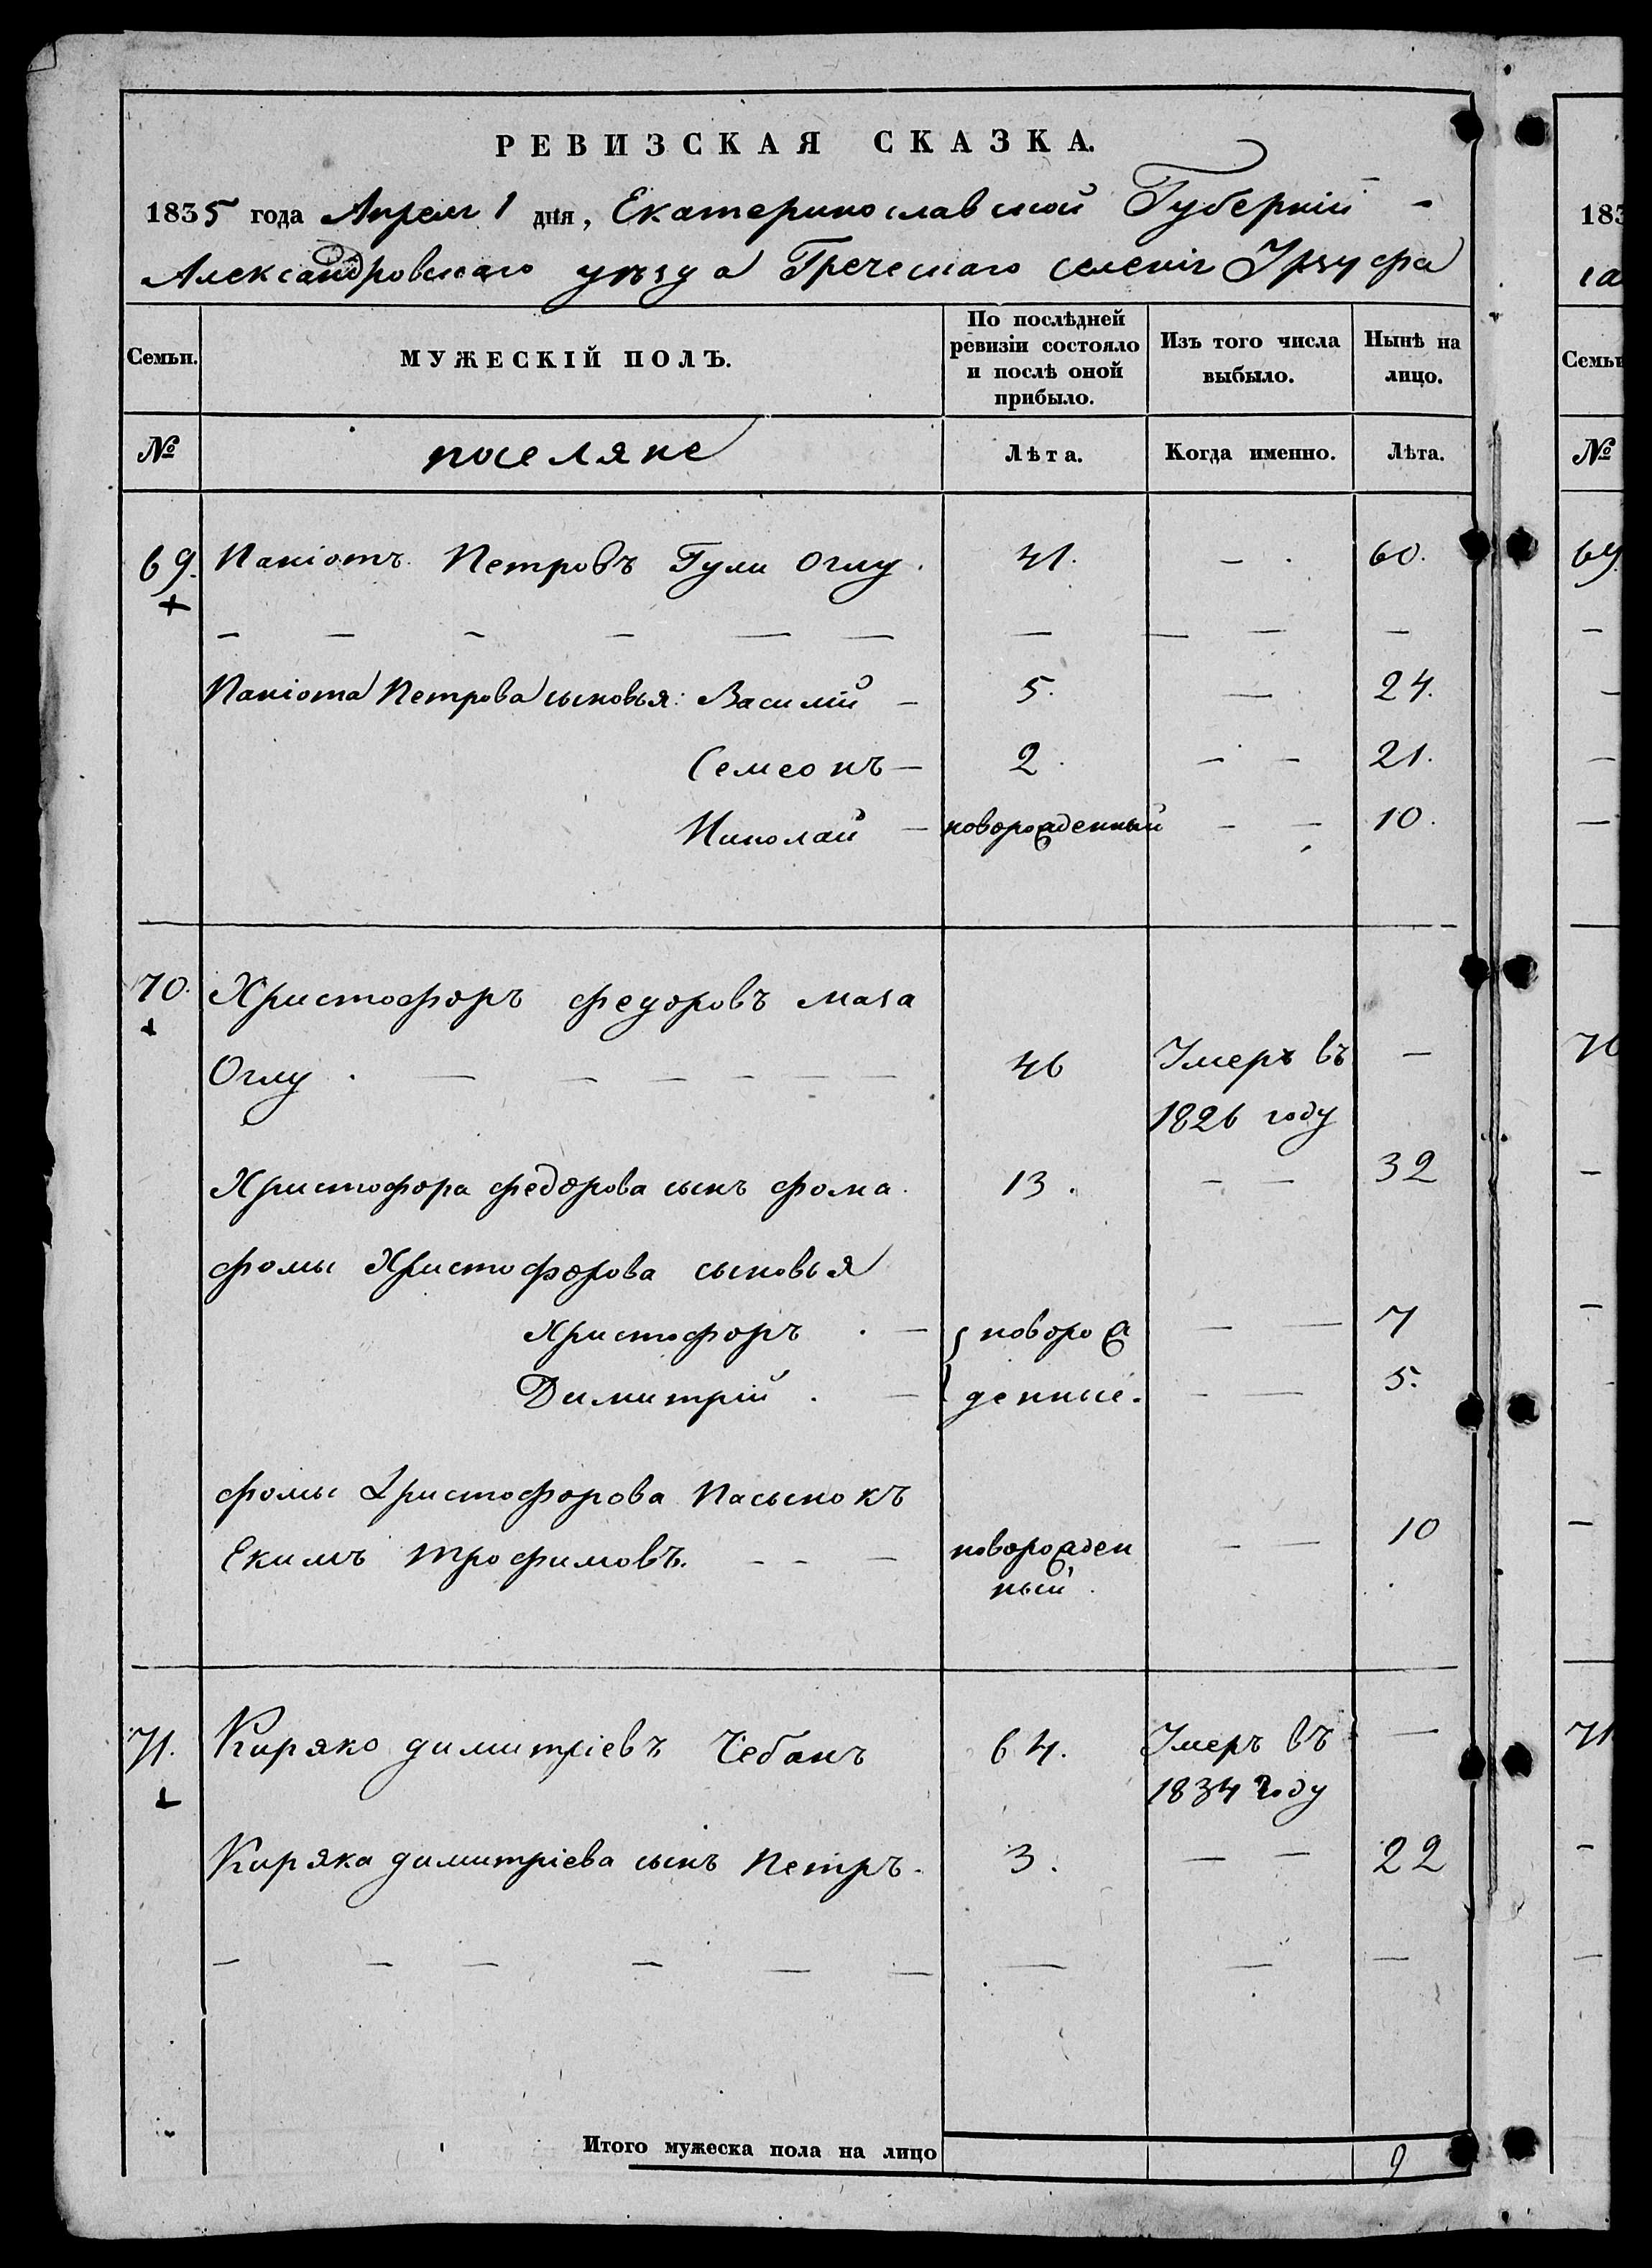 РЕВИЗСКАЯ СКАЗКА.
1835 года Апреля 1 дня, Екатеринославской Губерніи -
Александровскаго уѣзда Греческаго селенія Урзуфа
Семьи. МУЖЕСКІЙ ПОЛЪ. По послѣдней ревизіи состояло и послѣ оной прибыло. Изъ того числа выбыло. Нынѣ на лицо.
№ поселяне Лѣта. Когда именно. Лѣта.
69. Паніотъ Петровъ Гули Оглу. 41. - 60.
Паніота Петрова сыновья: Василій - 5. - 24.
Семеонъ - 2. - - 21.
Николай - новорожденный - - 10.
70. Христофоръ федоровъ
Оглу. - - - - - - 46 Умеръ въ -
1826 году
Христофора федорова сынъ фома. 13. - - 32
фомы Христофорова сыновья
Христофоръ . - { новорож - - 7
Димитрій . - { денные. - - 5.
фомы Христофорова Пасынокъ
Екимъ трофимовъ. - - - новорожден - - 10
ный.
71. Киряко димитріевъ Чебанъ 64. Умеръ въ -
1834 году
Киряка димитріева сынъ Петръ. 3. - - 22
Итого мужеска пола на лицо 9
183
Семьи
№
69.
70
71